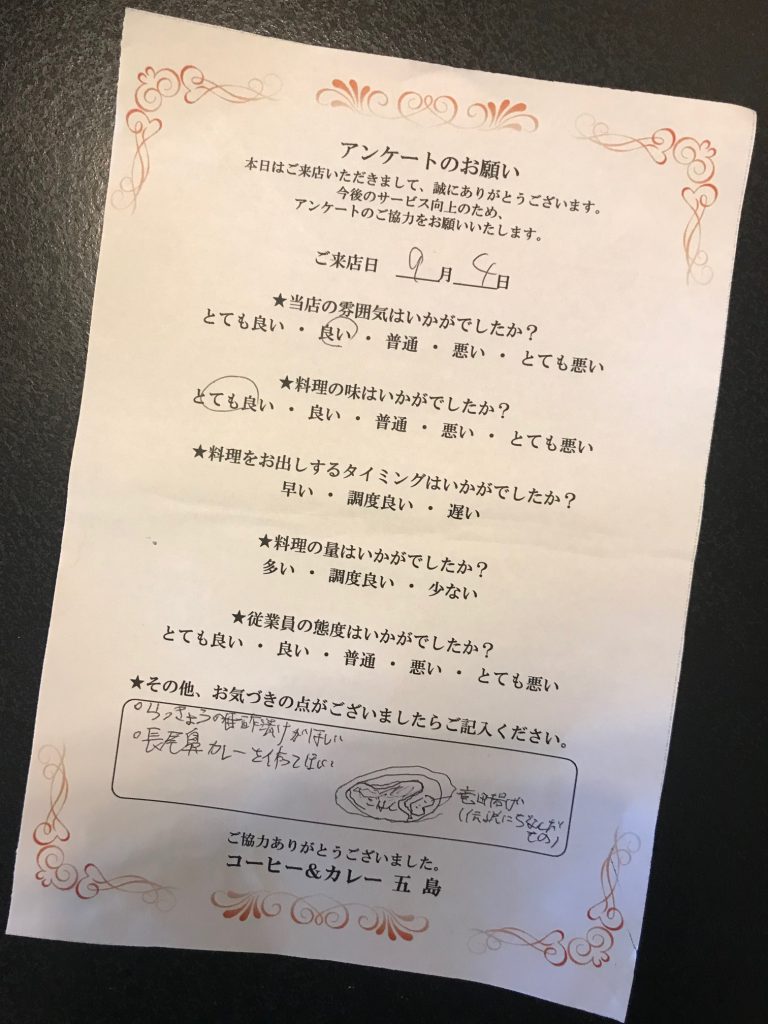 アンケートのお願い
本日はご来店いただきまして、誠にありがとうございます。
今後のサービス向上のため、
アンケートのご協力をお願いいたします。
ご来店日 9月 4日
★当店の雰囲気はいかがでしたか？
とても良い ・ 良い ・ 普通 ・ 悪い ・ とても悪い
★料理の味はいかがでしたか？
とても良い ・ 良い ・ 普通 ・ 悪い ・ とても悪い
★料理をお出しするタイミングはいかがでしたか？
早い ・ 調度良い ・ 遅い
★料理の量はいかがでしたか？
多い ・ 調度良い ・ 少ない
★従業員の態度はいかがでしたか？
とても良い ・ 良い ・ 普通 ・ 悪い ・ とても悪い
★その他、お気づきの点がございましたらご記入ください。
○らっきょうの甘酢漬けがほしい
○長尾鼻カレーを作ってほしい
ごはん
竜田揚げ
(伝説にちなんだ
もの)
ご協力ありがとうございました。
コーヒー＆カレー 五 島